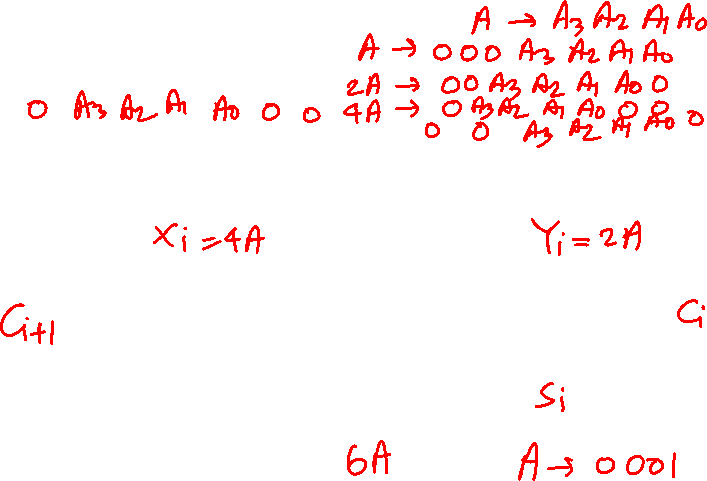 A → A3 A2 A1 A0
A → 0 0 0 A3 A2 A1 A0
2A → 0 0 A3 A2 A1 A0 0
0 A3 A2 A1 A0 0 0 4A → 0 A3 A2 A1 A0 0 0
0 0 A3 A2 A1 A0 0
Xi = 4A Yi = 2A
Ci+1 Ci
Si
6A A → 0001